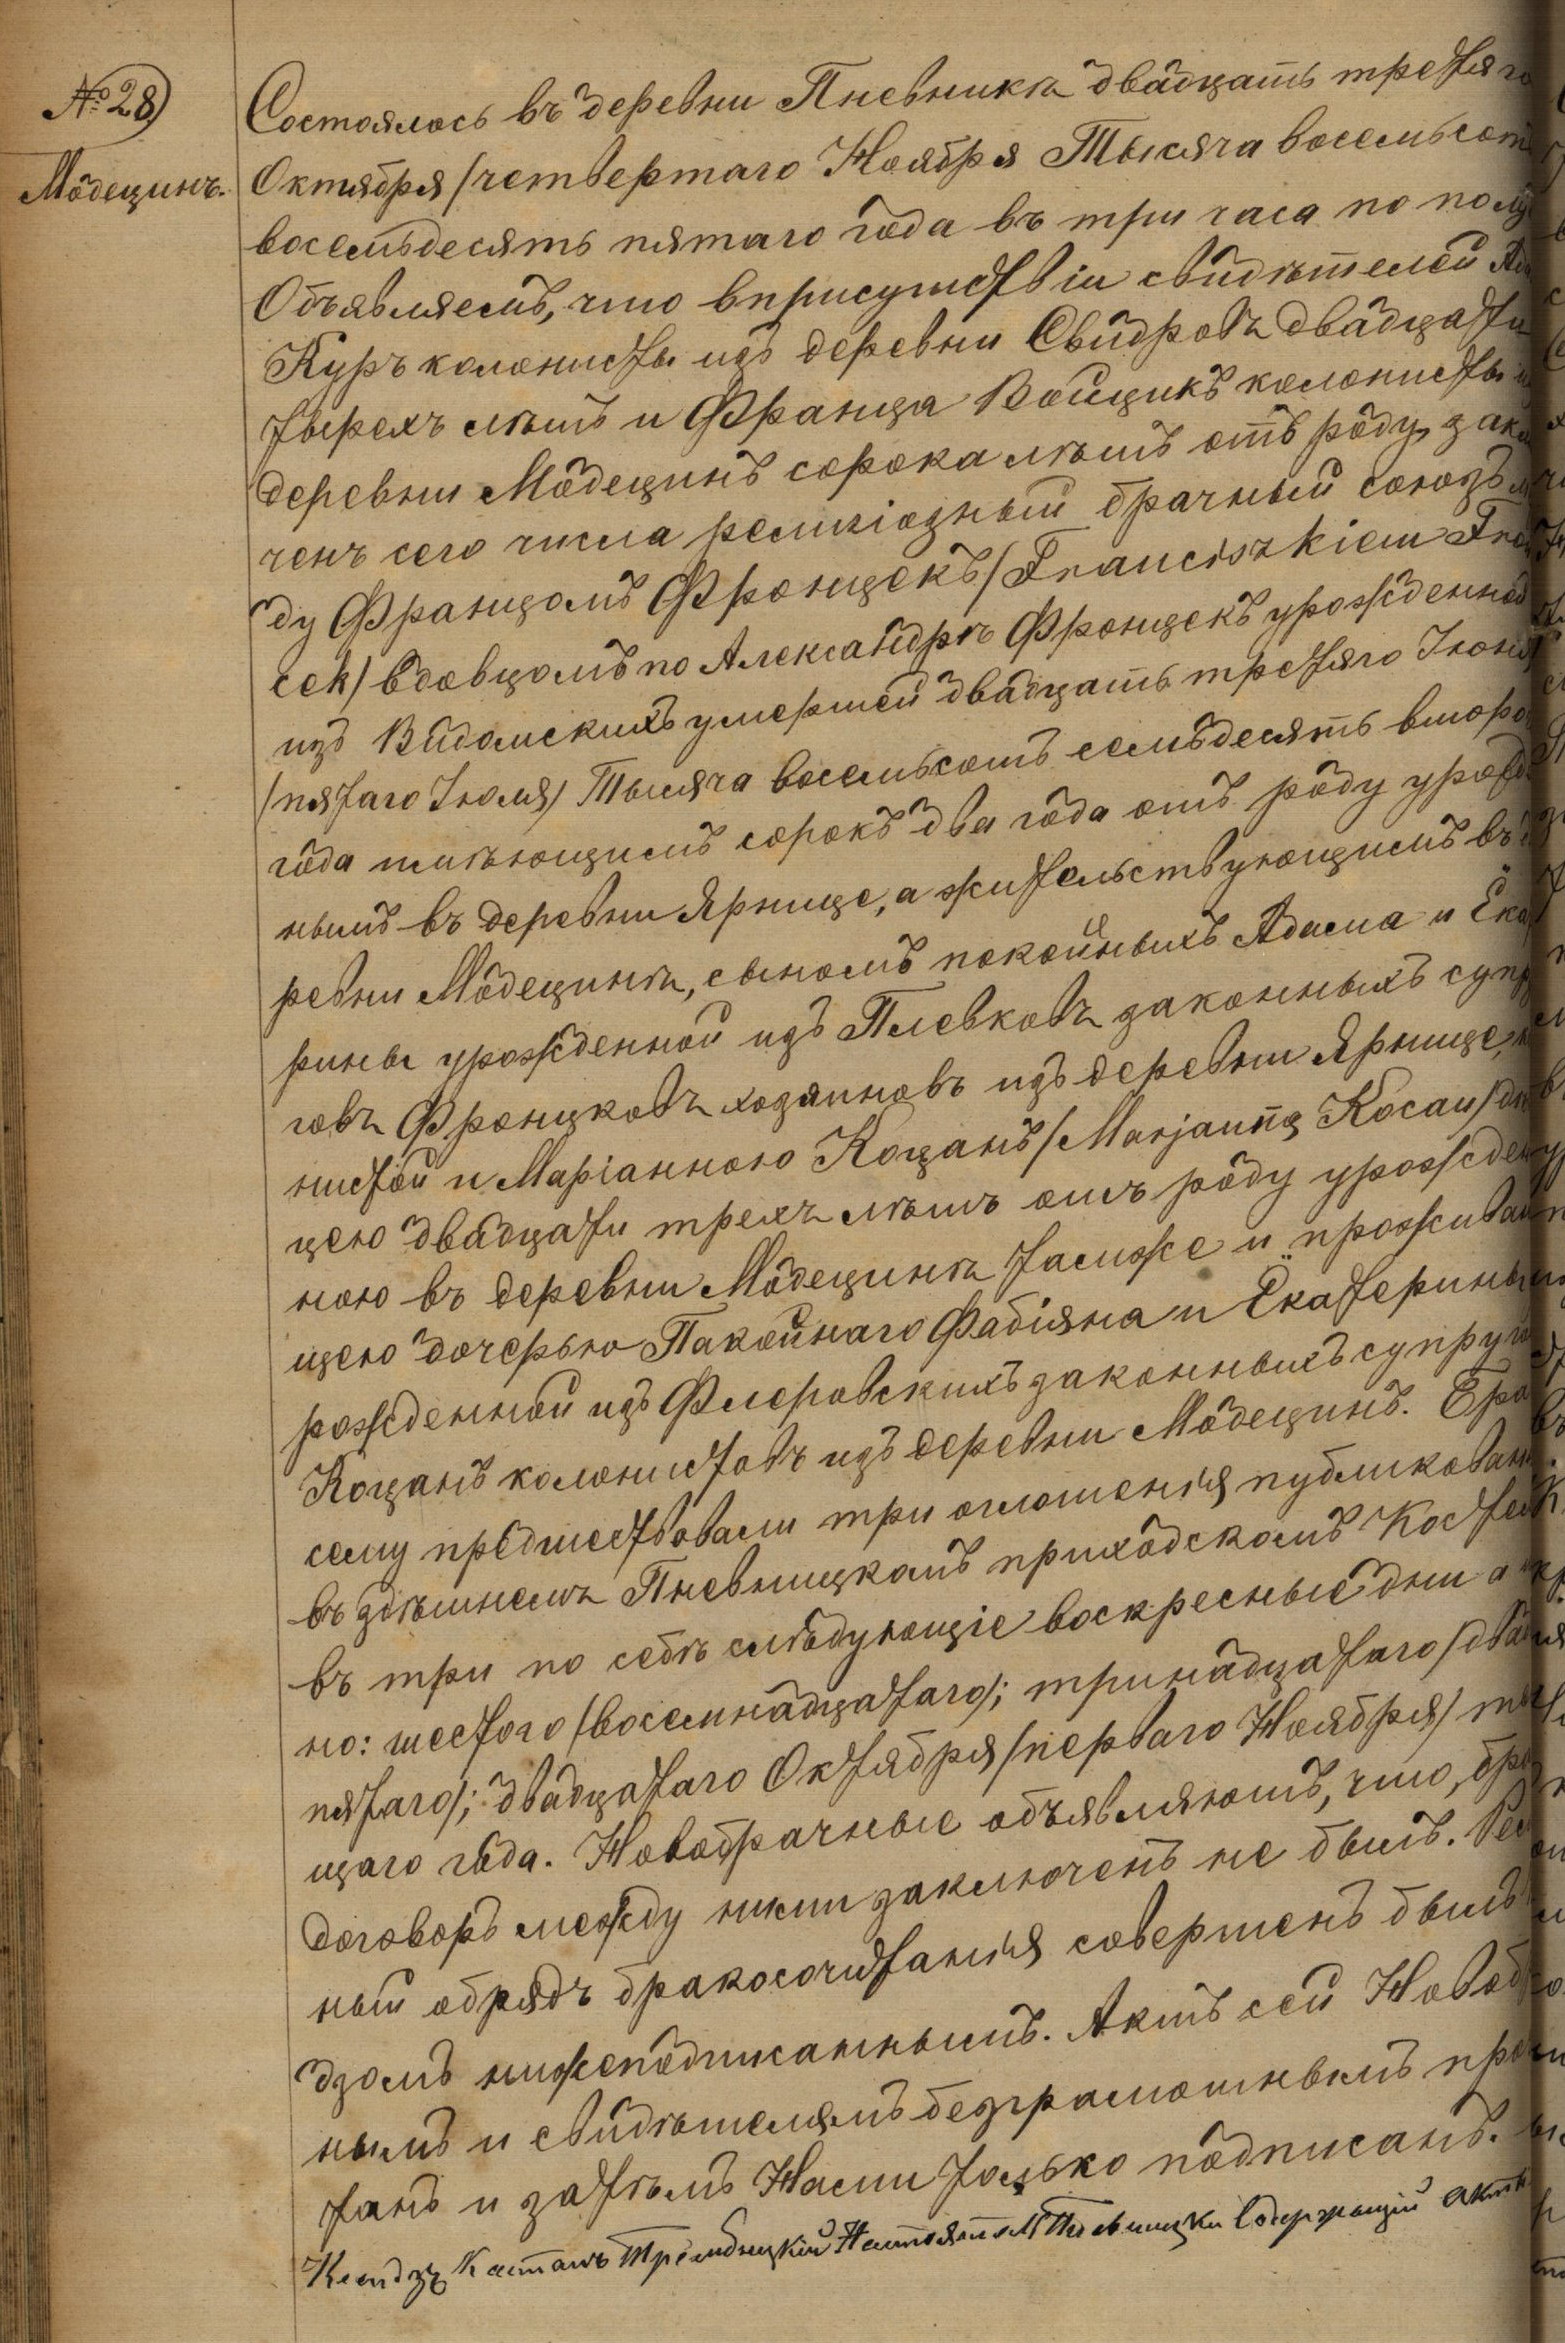 № 28)
Модецинъ.
Состоялось въ деревни Пневникѣ двадцать третяго
Октября /четвертаго Ноября Тысяча восемьсотъ
восемьдесять пятаго года въ три часа по полу
Объявляемъ, что вприсутствіи свидѣтелей
Куръ колонисты изъ деревни Свидровъ двадцати
тырехъ лѣтъ и Франца Войцикъ колонисты
деревни Модецинъ сорока лѣтъ отъ роду, зак
ченъ сего числа религіозный брачный союзъ
ду Францомъ Фронцекъ /Franciszkiem Fron
cek/ вдовцомъ по Александрѣ Фронцекъ урожденной
изъ Видомскихъ умершей двадцать третяго Іюня
/пятаго Іюля/ Тысяча восемьсотъ семьдесять второ
года имѣющимъ сорокъ два года отъ роду урожд
нымъ въ деревни Ярнице, а жительствующимъ въ
ревни Модецинѣ, сыномъ покойныхъ Адама и Ека
рины урожденной изъ Плевковъ законныхъ супру
говъ Фронцковъ хозяиновъ изъ деревни Ярнице,
нистой и Маріанною Коцанъ /Marjanną Kocan/
цею двадцати трехъ лѣтъ отъ роду урожден
ною въ деревни Модецинѣ тамже и прожива
щею дочерью Пакойнаго Фабіяна и Екатерины
рожденной изъ Флеровскихъ законныхъ супруго
Коцанъ колонистовъ изъ деревни Модецинъ. Бра
сему предшествовали три оглошенія публикован
въ здѣшнемъ Пневницкомъ приходскомъ Костел
въ три по себѣ слѣдующіе воскресные дни а
но: шестого /восемнадцатаго/; тринадцатаго /два
пятаго/; двадцатаго Октября /перваго Ноября/
щаго года. Новобрачные объявляютъ, что, бра
договоръ между ними заключенъ не былъ.
ный обрядъ бракосочитанія совершенъ былъ
дзомъ нижеподписаннымъ. Актъ сей Новоб
нымъ и свидѣтелямъ безграмотнымъ про
танъ и затѣмъ Нами только подписанъ.
Ксендзъ Трембицкій Содержащій акты